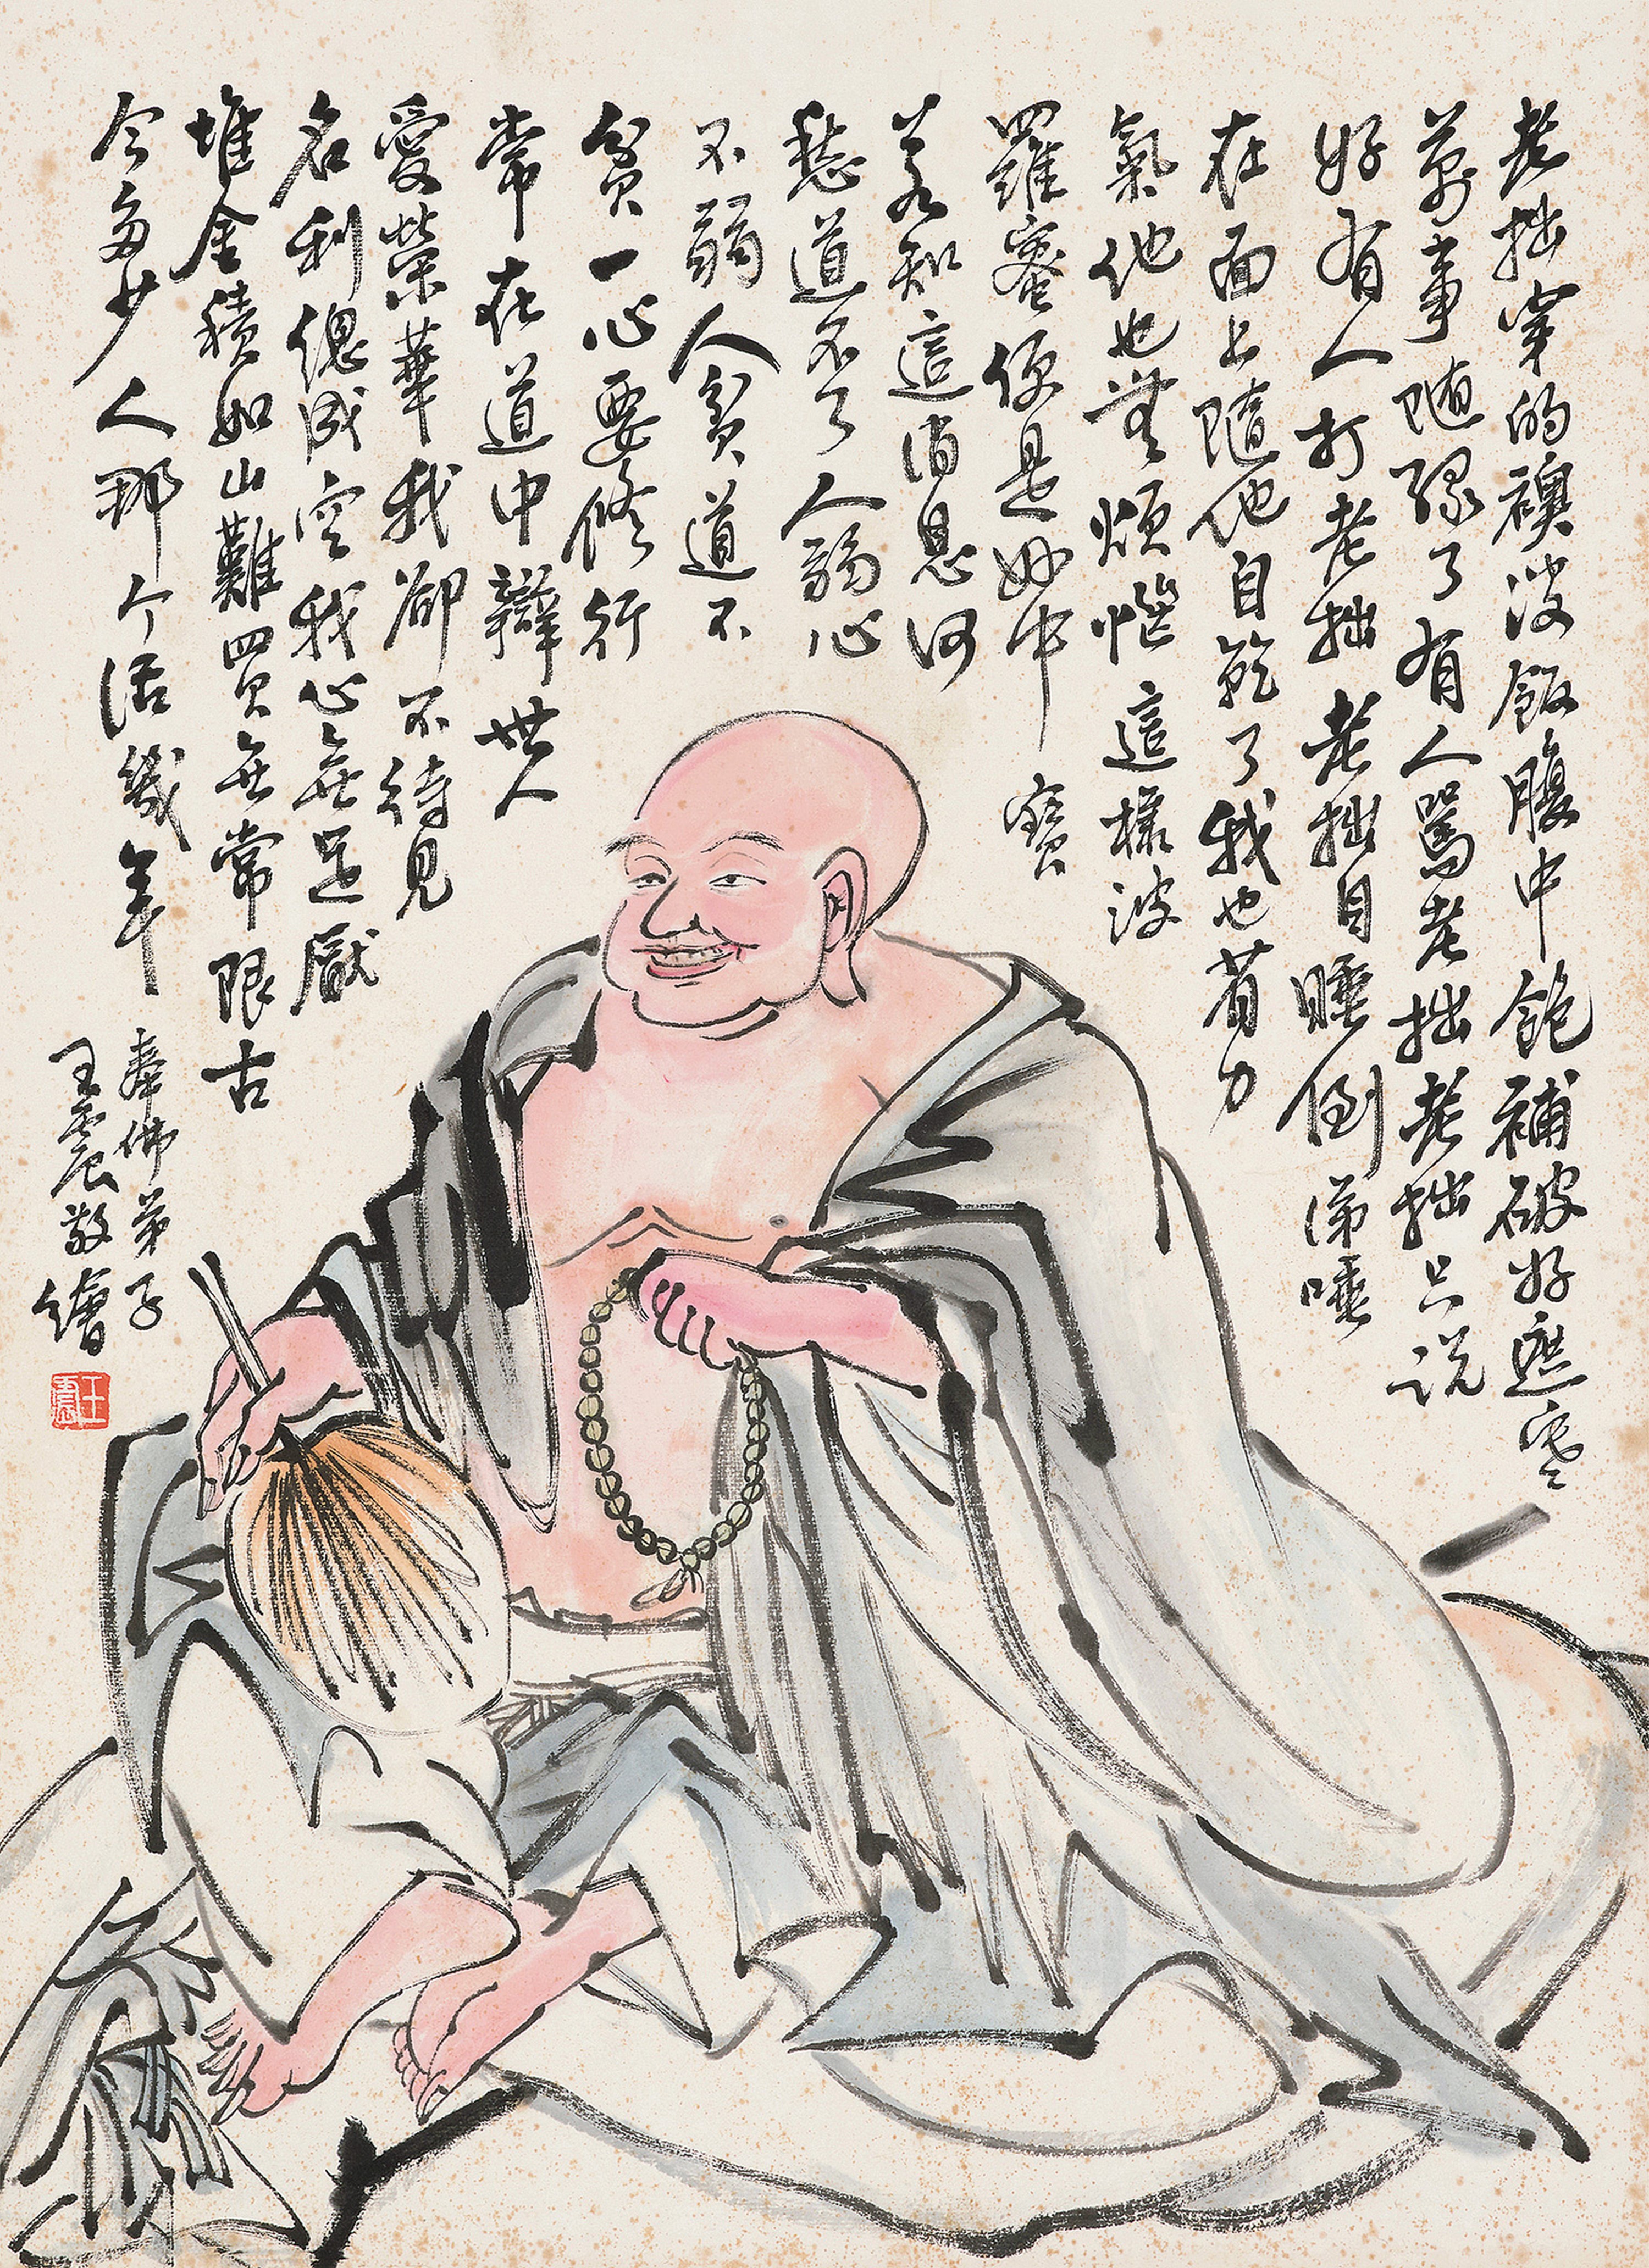 老拙穿的襖淡飯腹中飽補破好遮寒
萬事随緣了有人罵老拙老拙只说
好有人打老拙老拙自睡倒涕唾
在面上隨他自乾了我也省力
氣他也無煩惱這樣波
羅蜜便是妙中寶
若知這消息何
愁道不了人弱心
不弱人貧道不
貧一心要修行
常在道中辯世人
愛榮華我卻不待見
名利總成空我心無足厭
堆金積如山難買無常限古
今多少人那个活幾年
奉佛弟子
王震敬繪
王震